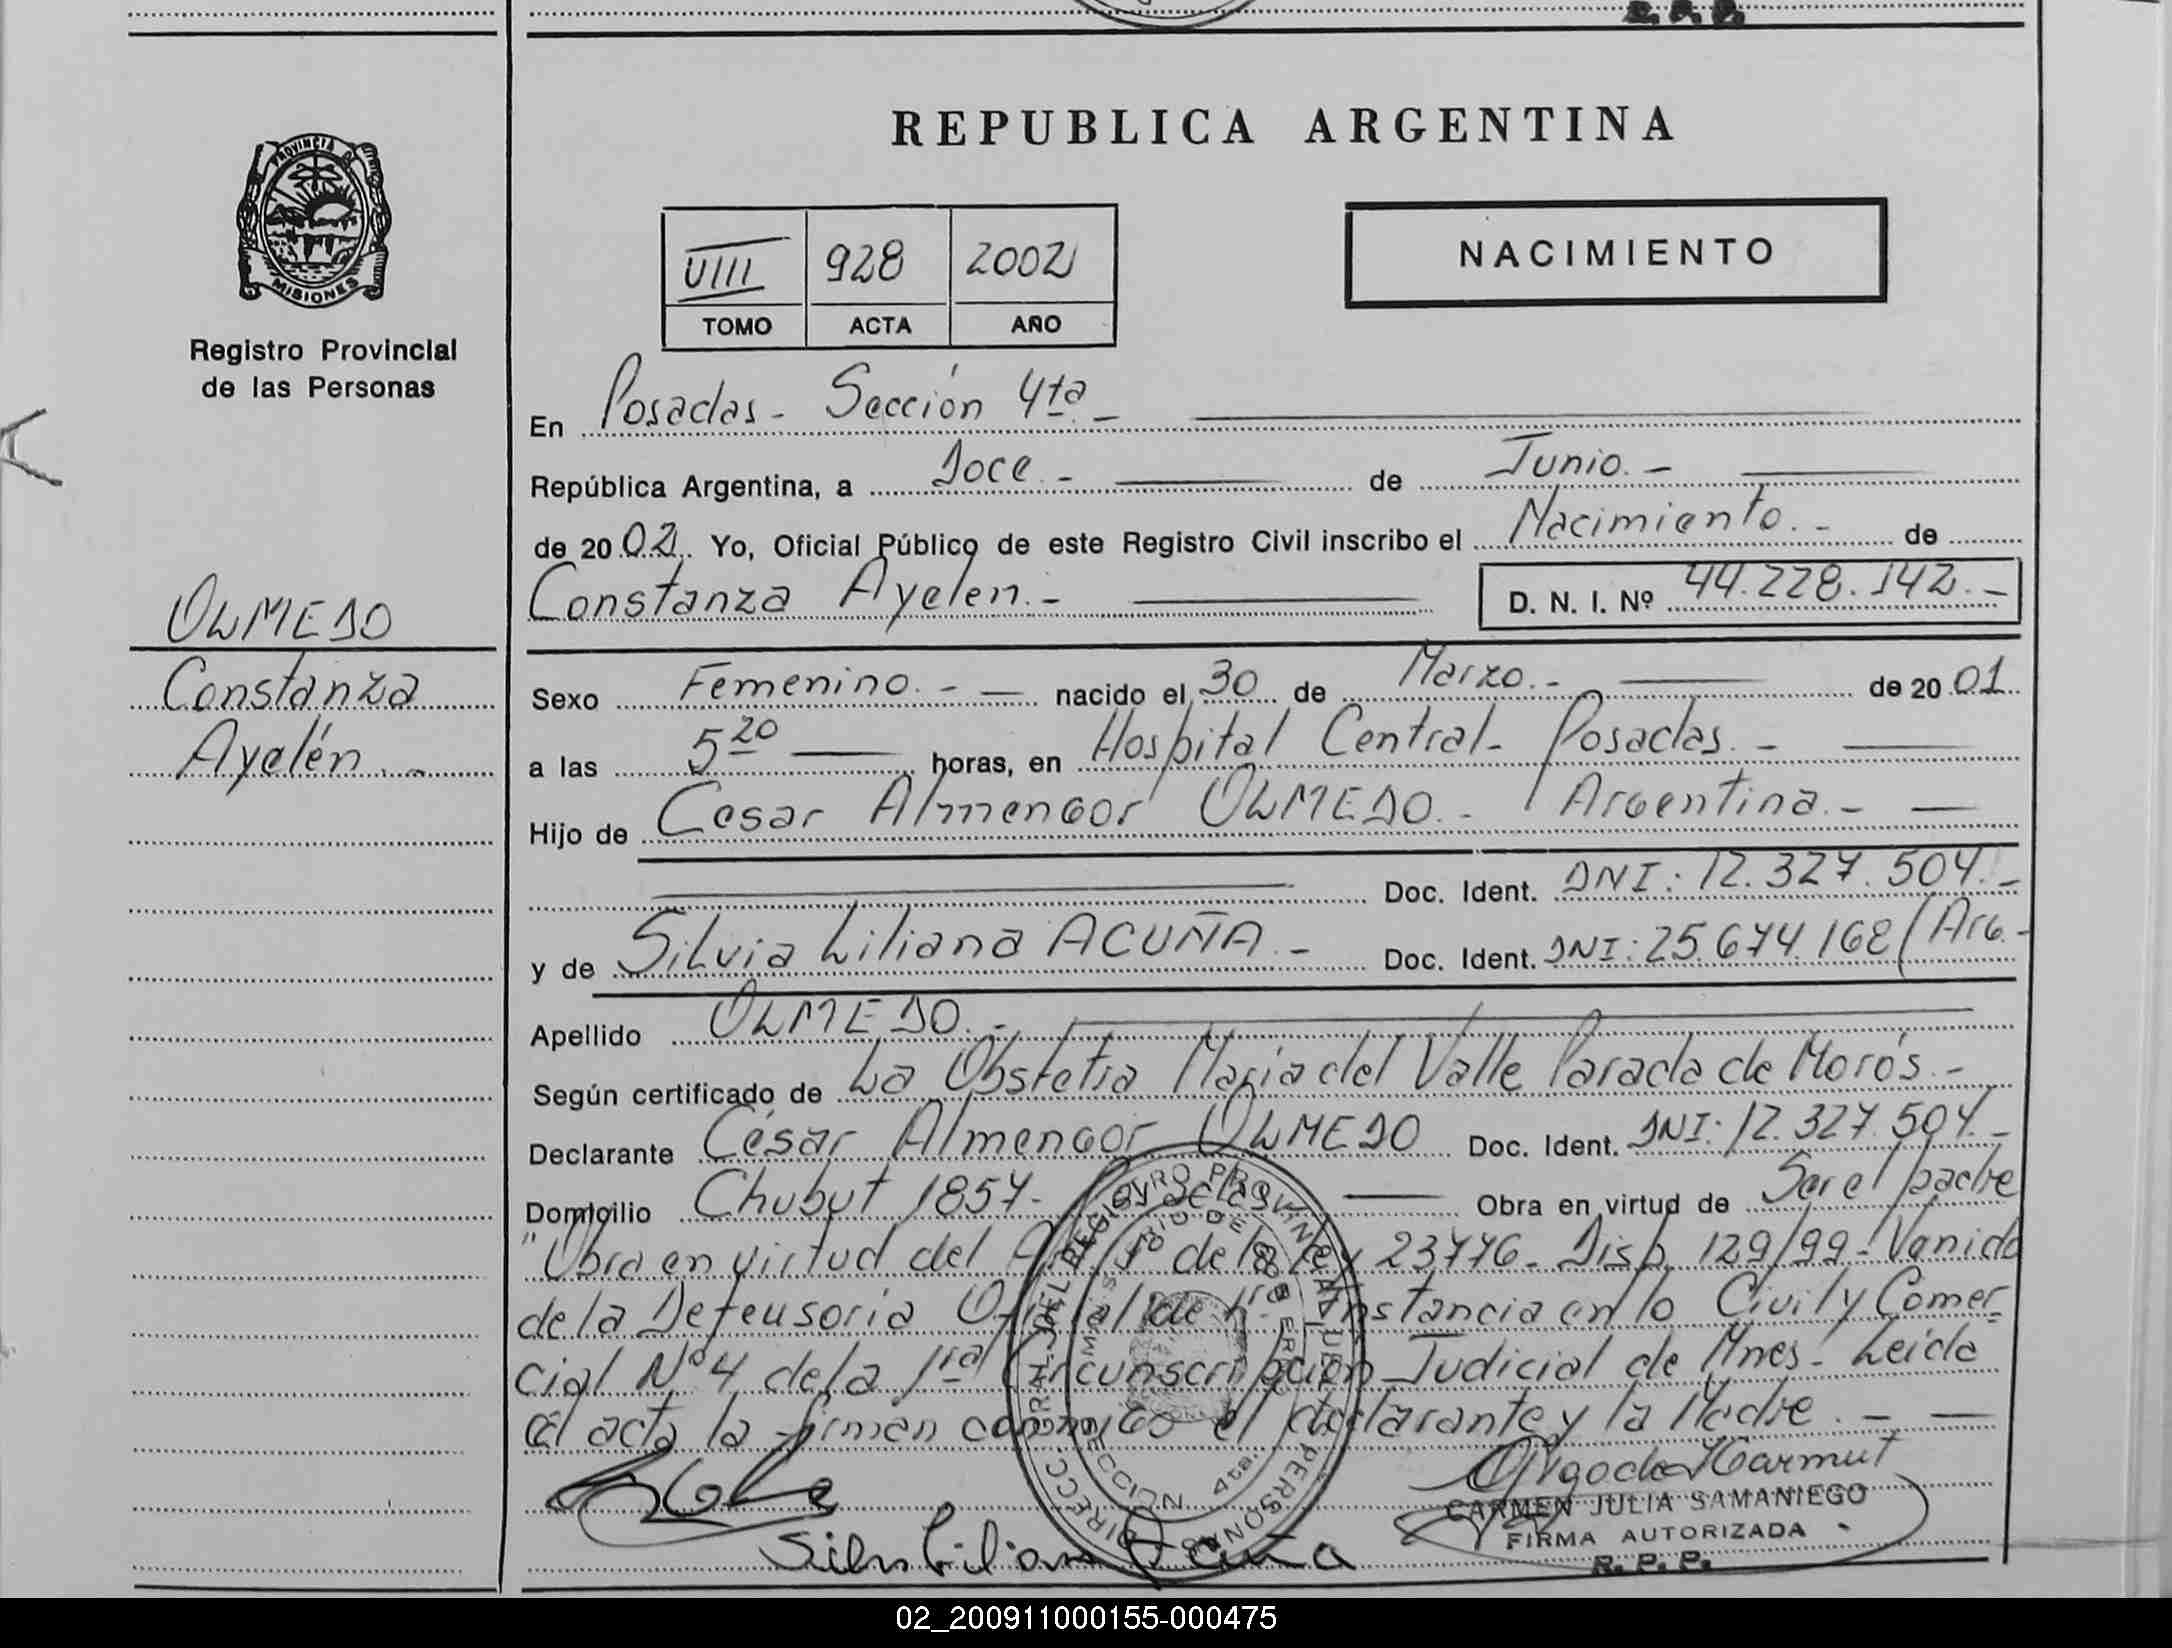 R. P. P.
REPUBLICA ARGENTINA
PROVINCIA DE
MISIONES
Registro Provincial
de las Personas
VIII 928 2002
TOMO ACTA AÑO
NACIMIENTO
En Posadas - Sección 4ta -
República Argentina, a Doce.- de Junio.-
de 2002. Yo, Oficial Público de este Registro Civil inscribo el Nacimiento.- de
Constanza Ayelen.- D. N. I. Nº 44.228.142.-
OLMEDO
Constanza
Ayelén.-
Sexo Femenino.- nacido el 30 de Marzo.- de 2001
a las 5 20 horas, en Hospital Central- Posadas.-
Hijo de Cesar Almengor OLMEDO.- / Argentina.-
Doc. Ident. DNI: 12.327.504.-
y de Silvia Liliana ACUÑA.- Doc. Ident. DNI: 25.674.168 / Arg.-
Apellido OLMEDO.-
Según certificado de La Obstetra Maria del Valle Parada de Morós.-
Declarante César Almengor OLMEDO Doc. Ident. DNI: 12.327.504.-
Domicilio Chubut 1857- Obra en virtud de Ser el padre
"Obra en virtud del de la Ley 23776- Disp. 129/99- Venida
de la Defensoria Oficial de 1ra Instancia en lo Civil y Comer-
cial Nº 4 de la 1ra Circunscripción Judicial de Mnes- Leida
el acta la firman conmigo el declarante y la Madre.-
DIRECC. GRAL. DEL REGISTRO PROVINCIAL DE LAS PERSONAS
SECCION 4ta.
CARMEN JULIA SAMANIEGO
FIRMA AUTORIZADA
R. P. P.
02_200911000155-000475